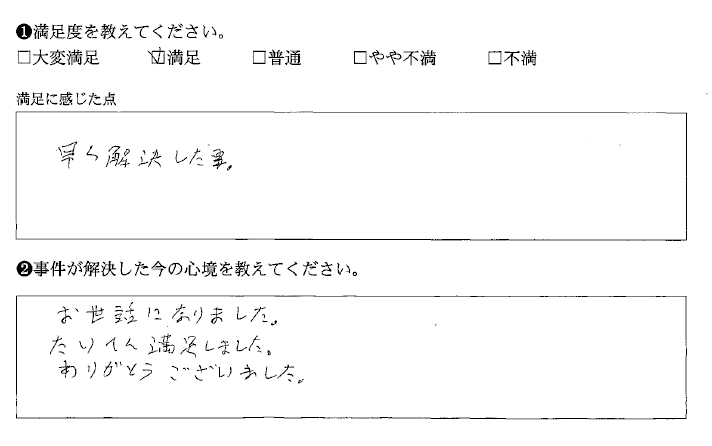 ❶満足度を教えてください。
□大変満足 ☑満足 □普通 □やや不満 □不満
満足に感じた点
早く解決した事。
❷事件が解決した今の心境を教えてください。
お世話になりました。
たいへん満足しました。
ありがとうございました。